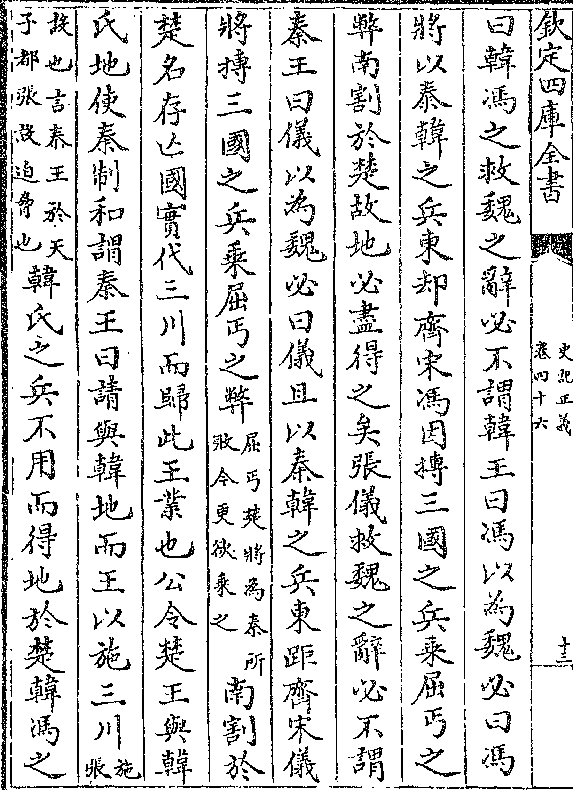 欽定四庫全書
史記正義
卷四十六
十三
曰韓馮之救魏之辭必不謂韓王曰馮以為魏必曰馮
將以秦韓之兵東却齊宋馮因摶三國之兵乗屈丐之
弊南割於楚故地必盡得之矣張儀救魏之辭必不謂
秦王曰儀以為魏必曰儀且以秦韓之兵東距齊宋儀
將摶三國之兵乗屈丐之弊屈丐楚將為秦所敗今更欲乗之南割於
楚名存亡國實代三川而歸此王業也公令楚王與韓
氏地使秦制和謂秦王曰請與韓地而王以施三川施張
故也言秦王於天子都張設迫脅也韓氏之兵不用而得地於楚韓馮之